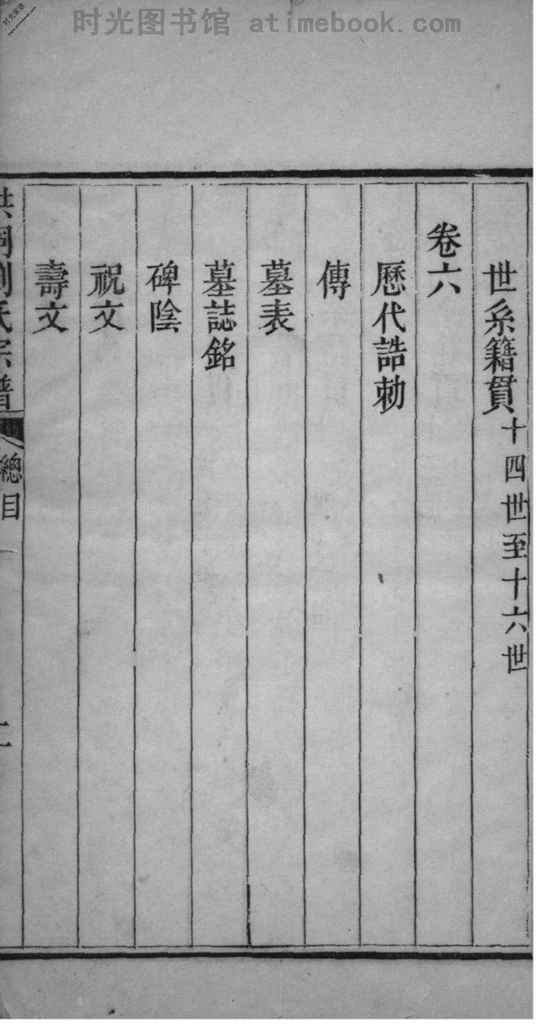 时光图书馆 atimebook.com
世系籍貫十四世至十六世
卷六
歷代誥勅
傳
墓表
墓誌銘
碑陰
祝文
壽文
洪洞劉氏宗譜 總目 二